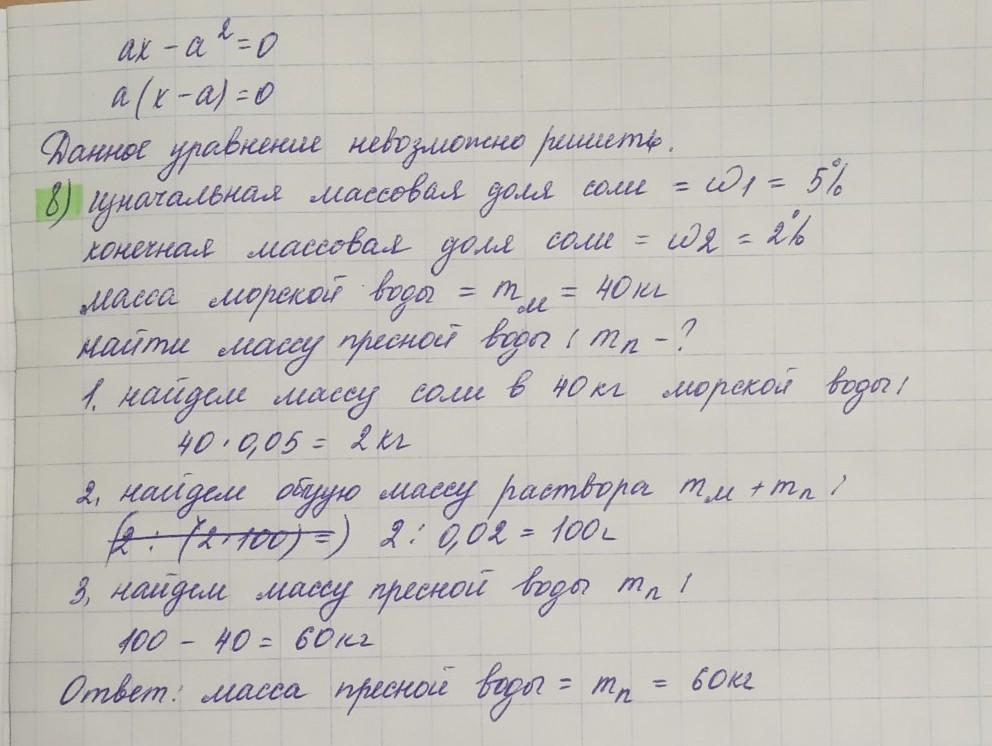 ax - a² = 0
a(x - a) = 0
Данное уравнение невозможно решить.
8) изначальная массовая доля соли = ω1 = 5%
конечная массовая доля соли = ω2 = 2%
масса морской воды = mм = 40 кг
найти массу пресной воды: mп - ?
1. найдем массу соли в 40 кг морской воды:
40 · 0,05 = 2 кг
2. найдем общую массу раствора mм + mп:
(2 : (2·100) =) 2 : 0,02 = 100г
3. найдем массу пресной воды mп:
100 - 40 = 60 кг
Ответ: масса пресной воды = mп = 60 кг